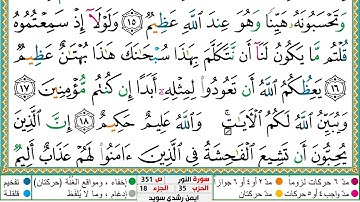 وَتَحْسَبُونَهُۥ هَيِّنًا وَهُوَ عِندَ ٱللَّهِ عَظِيمٌ ١٥ وَلَوْلَآ إِذْ سَمِعْتُمُوهُ
قُلْتُم مَّا يَكُونُ لَنَآ أَن نَّتَكَلَّمَ بِهَٰذَا سُبْحَٰنَكَ هَٰذَا بُهْتَٰنٌ عَظِيمٌ
١٦ يَعِظُكُمُ ٱللَّهُ أَن تَعُودُوا۟ لِمِثْلِهِۦٓ أَبَدًا إِن كُنتُم مُّؤْمِنِينَ ١٧
وَيُبَيِّنُ ٱللَّهُ لَكُمُ ٱلْءَايَٰتِ ۚ وَٱللَّهُ عَلِيمٌ حَكِيمٌ ١٨ إِنَّ ٱلَّذِينَ
يُحِبُّونَ أَن تَشِيعَ ٱلْفَٰحِشَةُ فِى ٱلَّذِينَ ءَامَنُوا۟ لَهُمْ عَذَابٌ أَلِيمٌ
مدّ ٦ حركات لزوما مدّ ٢ أو ٤ أو ٦ جوازا سورة النور ص 351 إخفاء، ومواقع الغُنَّة (حركتان) تفخيم
مدّ واجب ٤ أو ٥ حركات مدّ حركتان الحزب 35 الجزء 18 إدغام، وما لا يُلفَظ قلقلة
أيمن رشدي سويد